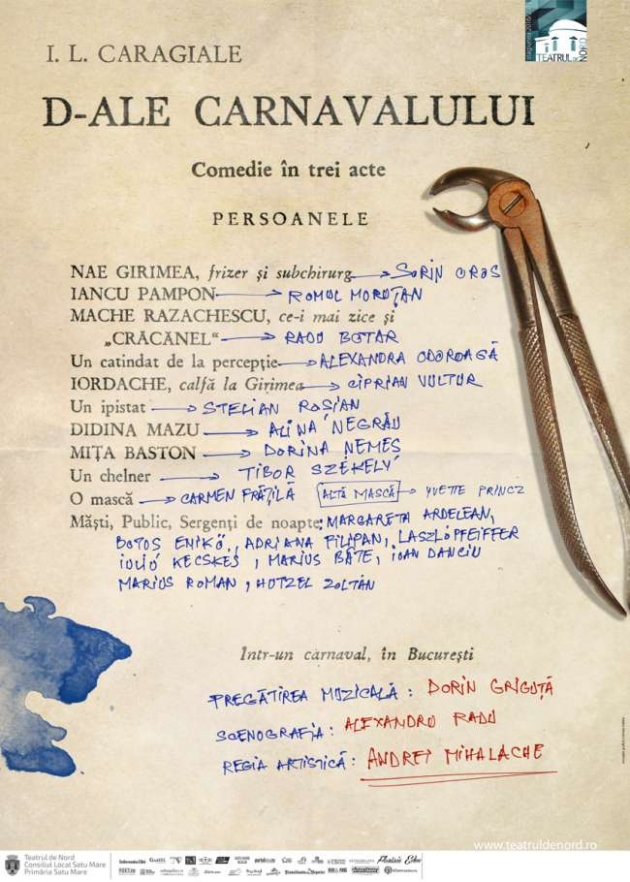 TEATRUL de NORD
I. L. CARAGIALE
D-ALE CARNAVALULUI
Comedie în trei acte
PERSOANELE
NAE GIRIMEA, frizer și subchirurg → SORIN OROS
IANCU PAMPON → ROMUL MORUȚAN
MACHE RAZACHESCU, ce-i mai zice și
„CRĂCĂNEL“ → RADU BOTAR
Un catindat de la percepție → ALEXANDRA ODOROAGĂ
IORDACHE, calfă la Girimea → CIPRIAN VULTUR
Un ipistat → STELIAN ROȘIAN
DIDINA MAZU → ALINA NEGRĂU
MIȚA BASTON → DORINA NEMEȘ
Un chelner → TIBOR SZÉKELY
O mască → CARMEN FRĂȚILĂ ALTĂ MASCĂ → YVETTE PRINCZ
Măști, Public, Sergenți de noapte: MARGARETA ARDELEAN,
BOTOS ENIKŐ, ADRIANA FILIPAN, LASZLÓ PFEIFFER
IULIU KECSKEȘ, MARIUS BÂTE, IOAN DANCIU
MARIUS ROMAN, HOTZEL ZOLTÁN
Într-un carnaval, în București
PREGĂTIREA MUZICALĂ: DORIN GRIGUȚĂ
SCENOGRAFIA: ALEXANDRU RADU
REGIA ARTISTICĂ: ANDREI MIHALACHE
www.teatruldenord.ro
Teatrul de Nord
Consiliul Local Satu Mare
Primăria Satu Mare